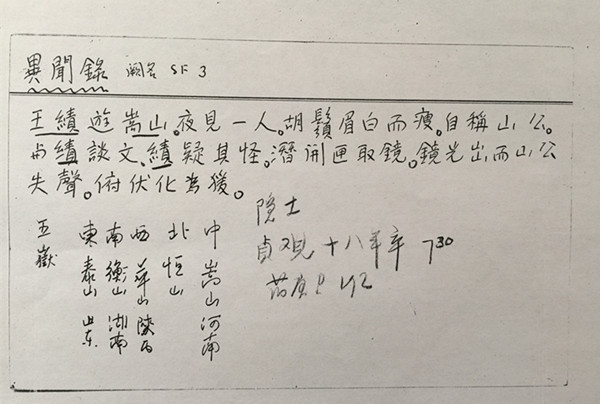 異聞錄 闕名 SF 3
王績遊嵩山。夜見一人。胡鬚眉白而瘦。自稱山公。
与績談文。績疑其怪。潛開匣取鏡。鏡光出而山公
失聲。俯伏化為猨。
五嶽
東 泰山 山东
南 衡山 湖南
西 華山 陝西
北 恒山
中 嵩山 河南
隐士
貞观十八年卒 730